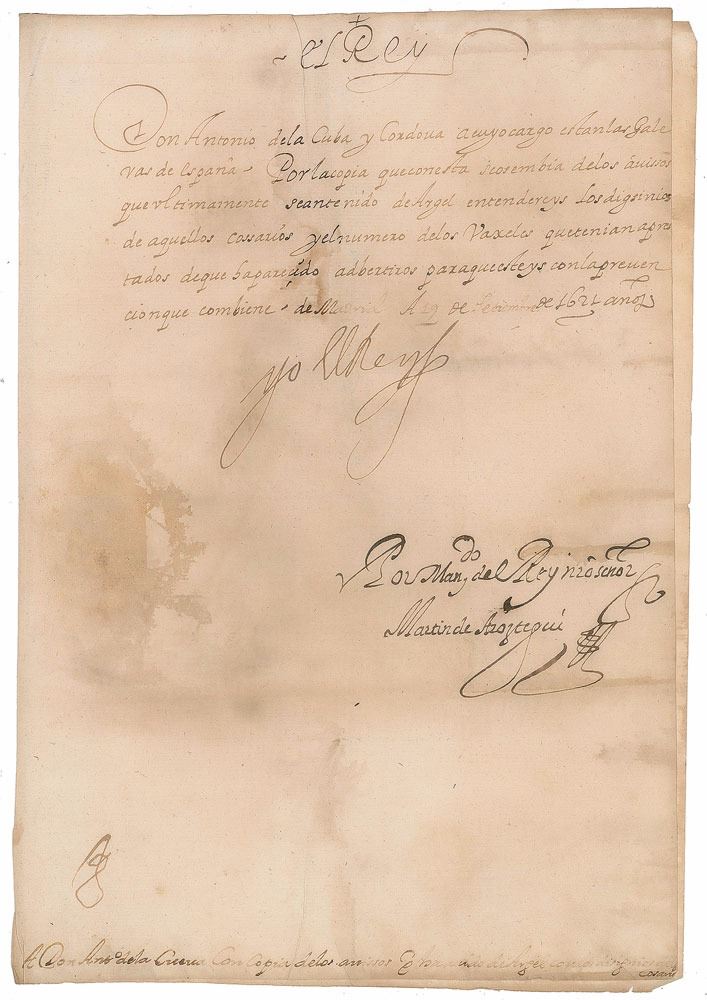 El Rey
Don Antonio dela Cuba y Cordoua acuyocargo estanlas Gale
ras de españa. Porlacopia queconesta seosembia delos auissos
que vltimamente seantenido de Argel entendereys los digsinios
de aquellos cossarios yelnumero delos Vaxeles quetenian apres
tados deque haparecido adbertiros paraqueesteys conlapreuen
cionque combiene. de Madrid A 19 de de 1621 años
yo el Rey
Por Man.do del Rey nr̄o señor
Martin de Aroztegui
A Don Ant.o dela Cueua Con Copia delos auisos de Argel
cosarios